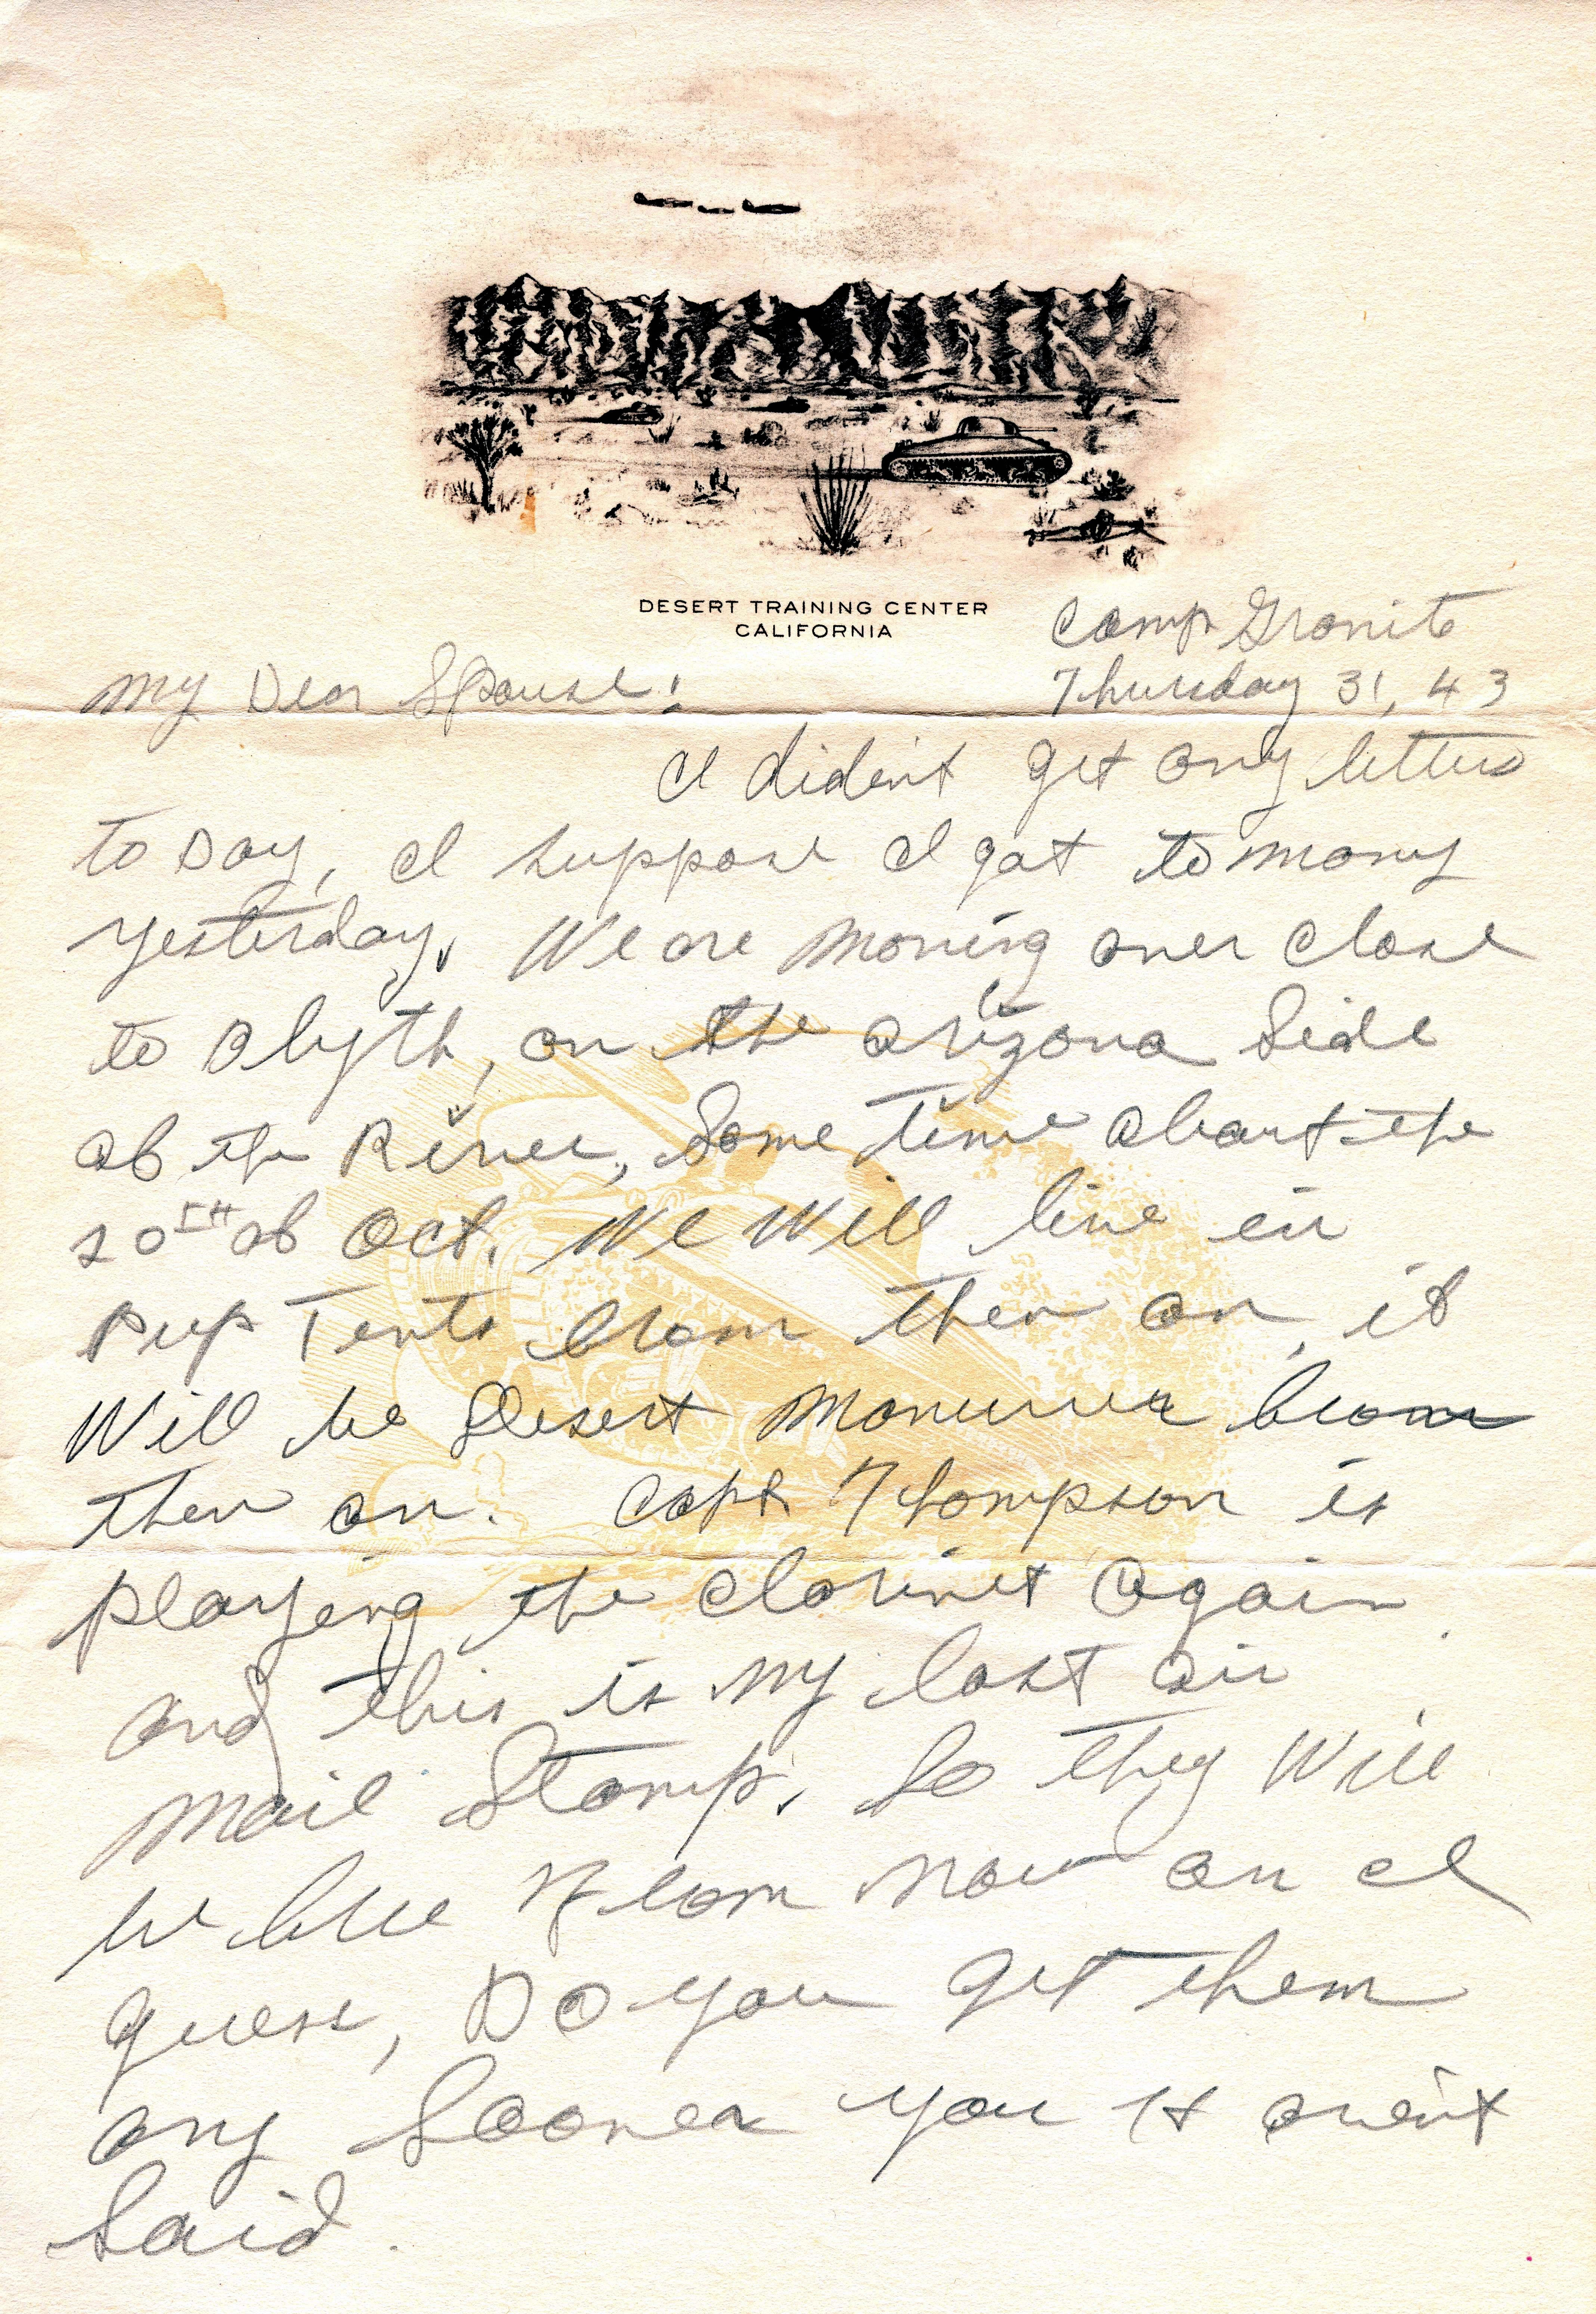 DESERT TRAINING CENTER
CALIFORNIA
Camp Granite
Thursday 31, 43
My Dear Spouse:
I dident get any letters
to Day, I suppose I got to many
yesterday. We are moving over close
to Blyth, on the arizona Side
of the River, Some time about the
20TH of Oct. We Will live in
Pup Tents from then on, it
Will be Desert from
then on. Capt Thompson is
playing the clarinet again
and this is my last air
Mail Stamp. So they Will
be free From now on I
guess, Do you get them
any Sooner you Havent
Said.